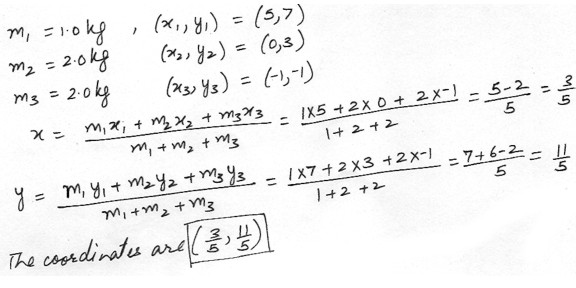 m₁ = 1.0 kg , (x₁, y₁) = (5,7)
m₂ = 2.0 kg (x₂, y₂) = (0,3)
m₃ = 2.0 kg (x₃, y₃) = (-1,-1)
x = (m₁x₁ + m₂x₂ + m₃x₃)/(m₁ + m₂ + m₃) = (1×5 + 2×0 + 2×-1)/(1+2+2) = (5-2)/5 = 3/5
y = (m₁y₁ + m₂y₂ + m₃y₃)/(m₁ + m₂ + m₃) = (1×7 + 2×3 + 2×-1)/(1+2+2) = (7+6-2)/5 = 11/5
The coordinates are (3/5, 11/5)